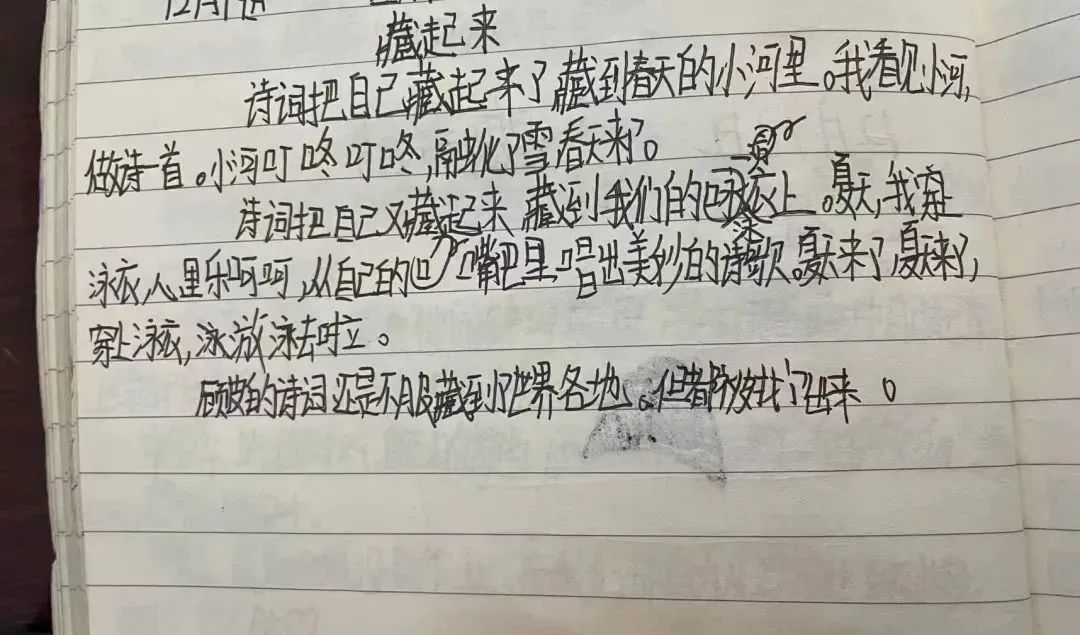 12月
藏起来
诗词把自己藏起来了藏到春天的小河里。我看见小河,
做诗一首。小河叮咚叮咚,融化了雪春天来了。
诗词把自己又藏起来,藏到我们的泳衣上。夏天,我穿上
泳衣,心里乐呵呵,从自己的嘴巴里唱出美妙的诗歌。夏天来了,夏天来了,
穿上泳衣,泳游泳去啦。
顽皮的诗词还是不服藏到了世界各地。但都被我找了出来。